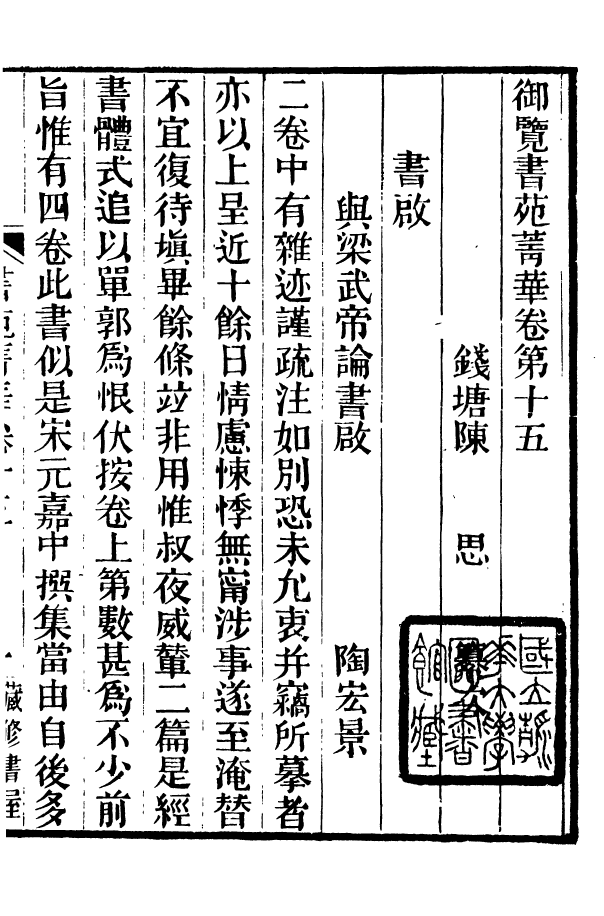 御覽書苑菁華卷第十五
錢塘陳　思
書啟
與梁武帝論書啟　陶宏景
二卷中有雜迹謹疏注如別恐未允衷幷竊所摹者
亦以上呈近十餘日情慮悚悸無甯涉事遂至淹替
不宜復待塡畢餘條竝非用惟叔夜威輦二篇是經
書體式追以單郭爲恨伏按卷上第數甚爲不少前
旨惟有四卷此書似是宋元嘉中撰集當由自後多
藏修書屋